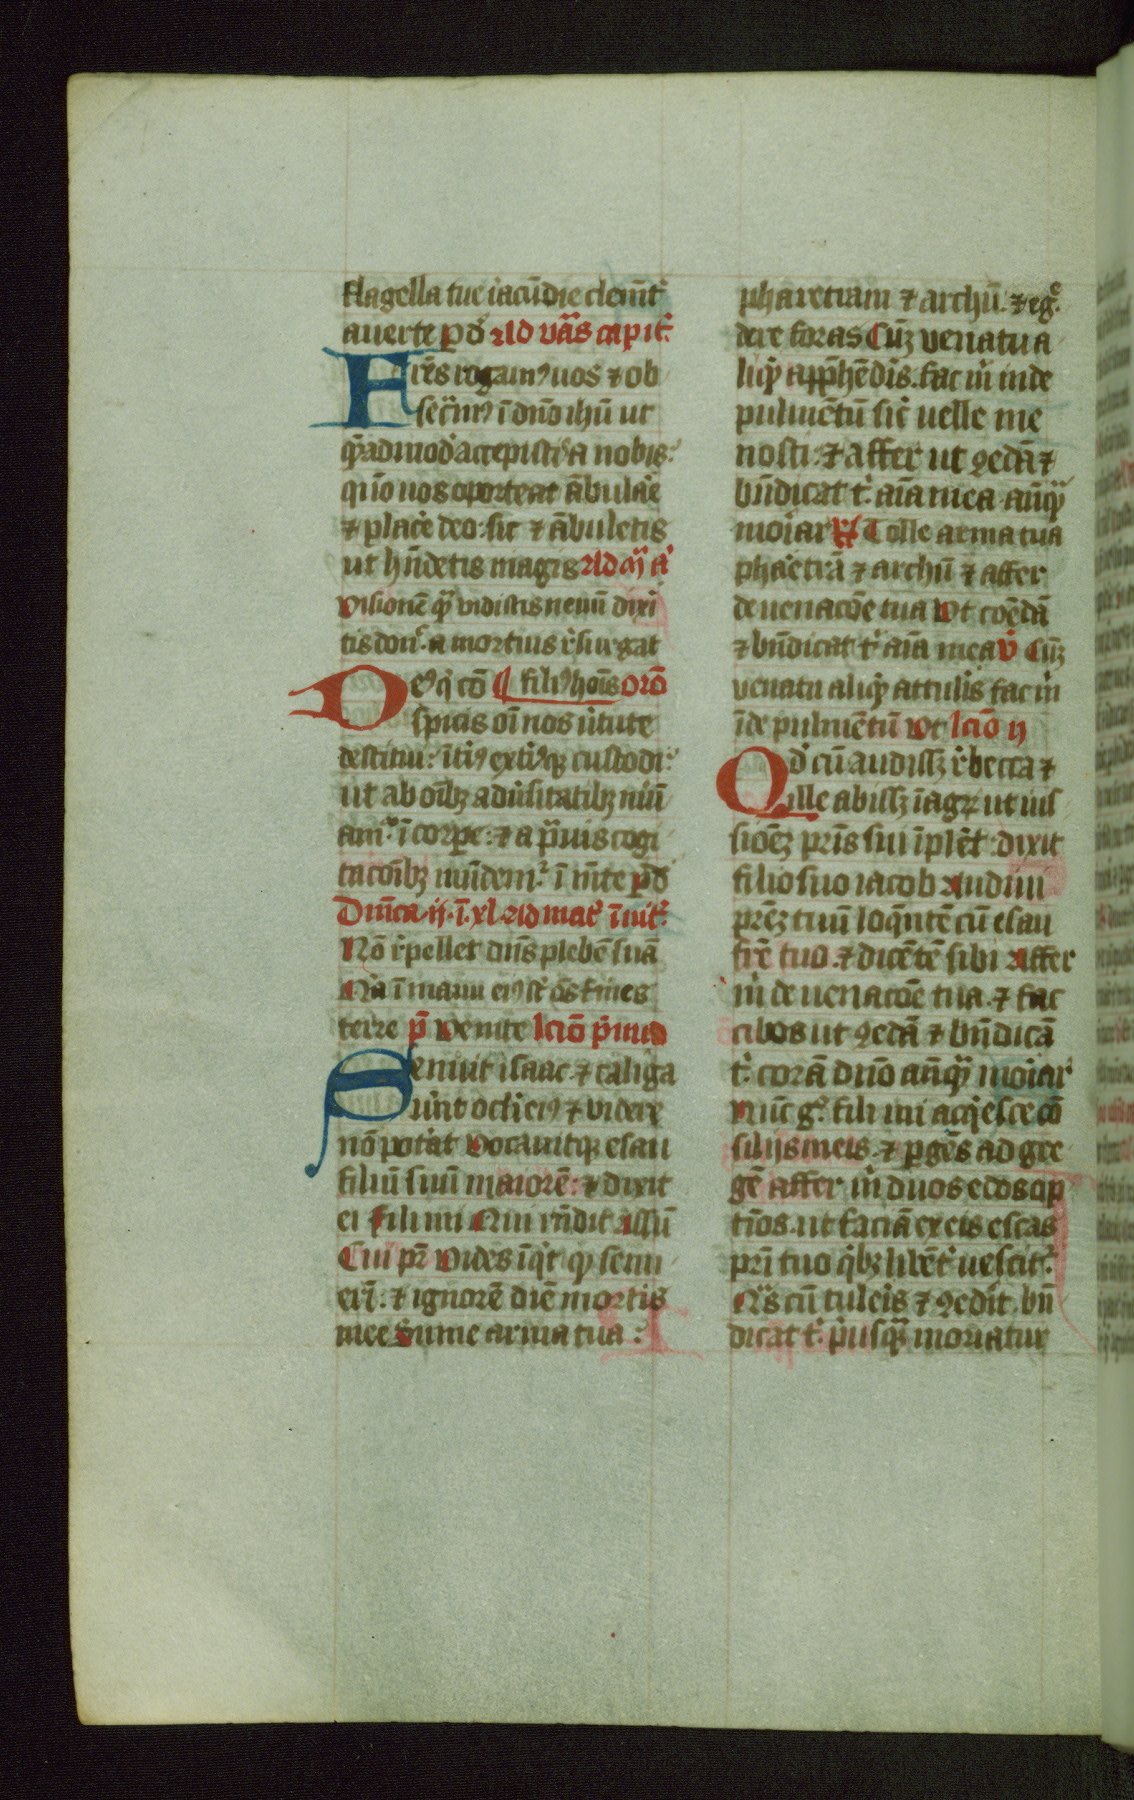 flagella tue iacūdie clem̄t᷑
auerte p̲ d᷑ Ad vās̄ capit᷑
Frēs rogamꝰ uos ⁊ ob
secr̄mꝰ ī dn̄o ihū ut
q̄ādmod᷑ accepistis a nobis:
quō uos oporteat ābulare
⁊ place᷑ deo: sic ⁊ ābuletis
ut hūdetis magis Ad mꝫ a᷑
Visionē quā vidistis nemī dixi
tis don᷑ a mortuis r᷑surgat
Deꝰ q᷑ cō filiꝰ hoīs orō
spicis oī nos u᷑tute
destitui: īt᷑iꝰ ext᷑iꝰqꝫ custodi:
ut ab oībꝫ adu᷑sitatibꝫ mūi
am᷑ ī corpe: ⁊ a p̄uis cogi
tacōibꝫ mūdem᷑ ī mēte p̲ d᷑
Dn̄ica ij ī xl Ad mat᷑ īuit᷑
Nō r᷑pellet dn̄s plebē suā
Q̄a ī manu eiꝰ st᷑ oēs fines
terre p̄s Venite lciō p̄ima
Senuit isaac ⁊ caliga
u᷑ūt oc᷑li eiꝰ ⁊ videre
nō pot᷑at Vocauitqꝫ esau
filiū suū maiorē: ⁊ dixit
ei Fili mi Qui rn̄dit Assū
Cui pr̄ Vides īq᷑t qꝫ senu
erī. ⁊ ignorē diē mortis
mee Sume arma tua:
pharetram ⁊ archū. ⁊ eg᷑
dere foras Cūꝫ venatu a
liq᷑ app̄hēdis. fac m᷑ inde
pulmētū sic᷑ uelle me
nosti: ⁊ affer ut ꝯedā ⁊
bn̄dicat t᷑ aīa mea. an̄qꝫ
moiar ℟ Tolle arma tua
phaetrā ⁊ archū ⁊ affer
de uenacōe tua Vt coēdā
⁊ bn̄dicat t᷑ aīa mea v᷑ Cūꝫ
venatu aliq᷑ attul᷑is fac m᷑
īde pulmētū Vt lciō ij
Qd᷑ cū audissꝫ r᷑becca ⁊
ille abissꝫ ī agꝝ ut ius
sionēꝫ pr̄is sui īplēt᷑: dixit
filio suo iacob Audiui
pr̄eꝫ tuū loq̄ntē cū esau
fr̄e tuo. ⁊ dicētē sibi Affer
m᷑ de uenacōe tua. ⁊ fac
cibos ut ꝯedā ⁊ bn̄dicā
t᷑. corā dn̄o an̄qꝫ moiar᷑
Nūc g᷑ fili mi acq᷑esce cō
silijs meis. ⁊ p̲gēs ad gre
gē affer m᷑ duos edos op
tīos. ut faciā ex eis escas
pr̄i tuo q᷑bꝫ libēt᷑ uescit᷑.
Q᷑s cū tuleis ⁊ ꝯedit. bn̄
dicat t᷑. p᷑usqꝫ moriatur